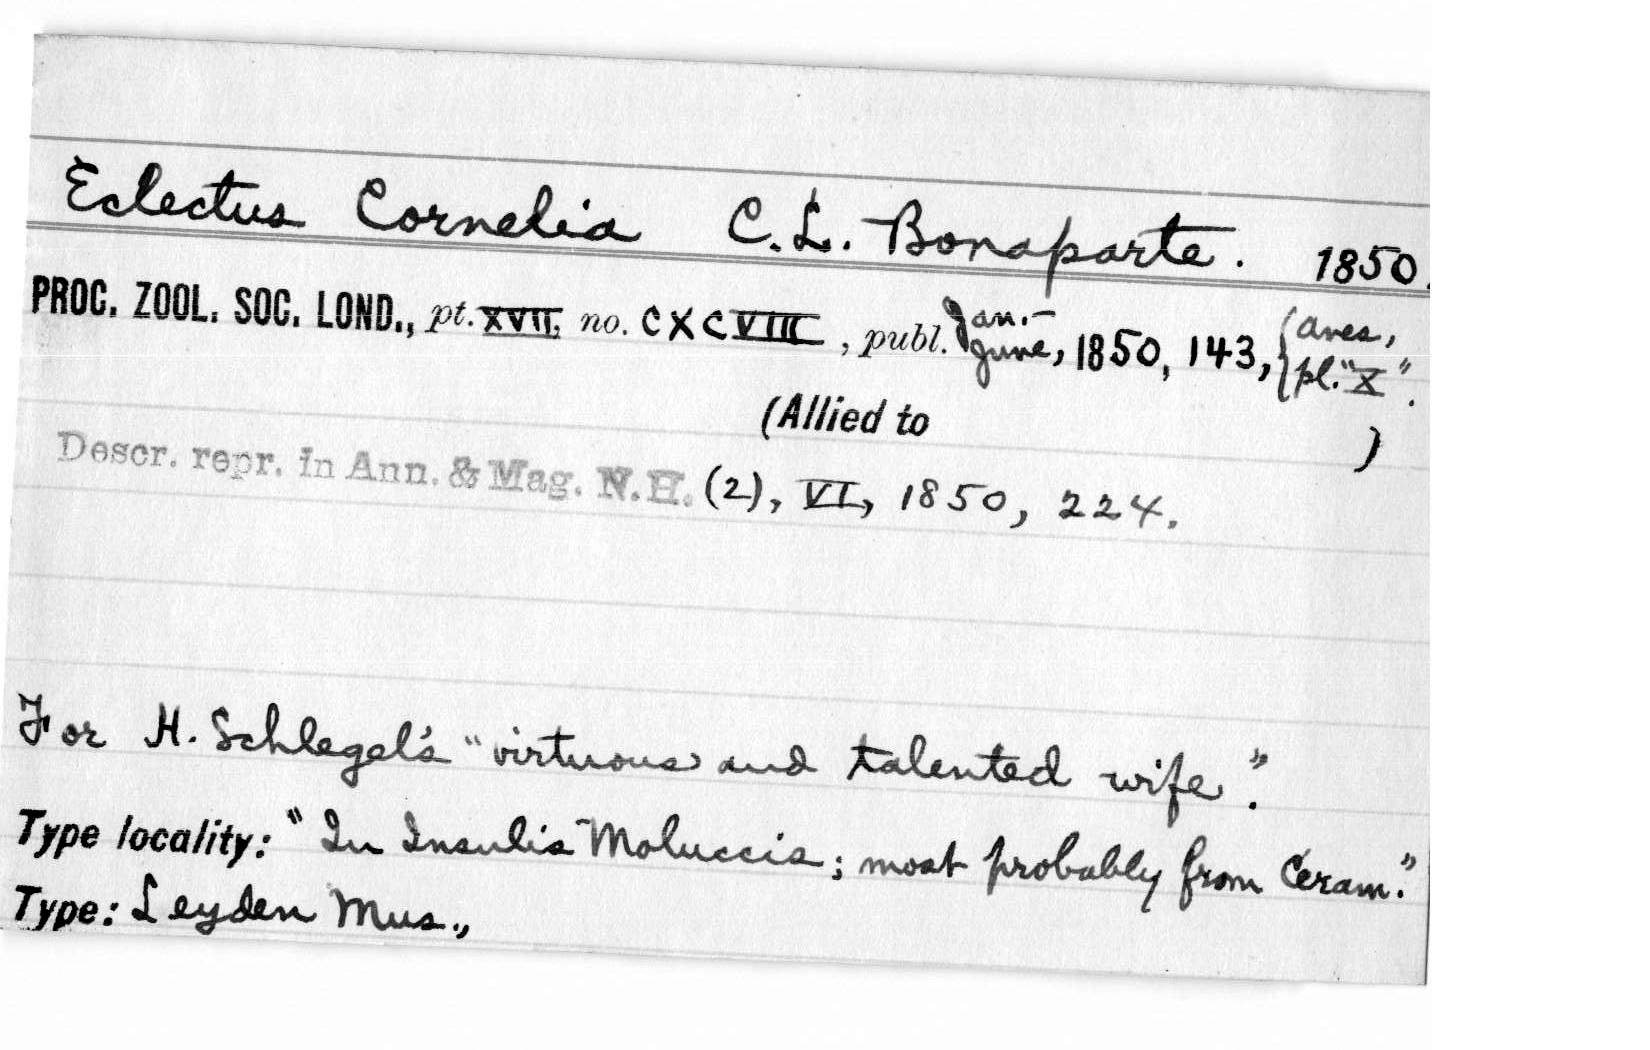 Eclectus Cornelia C.L. Bonaparte. 1850.
PROC. ZOOL. SOC. LOND., pt. XVII, no. CXCVIII, publ. Jan.-June, 1850, 143, {Aves, pl. "X".
(Allied to )
Descr. repr. in Ann. & Mag. N.H. (2), VI, 1850, 224.
For H. Schlegel's "virtuous and talented wife".
Type locality: "In Insulis Moluccis; most probably from Ceram."
Type: Leyden Mus.,